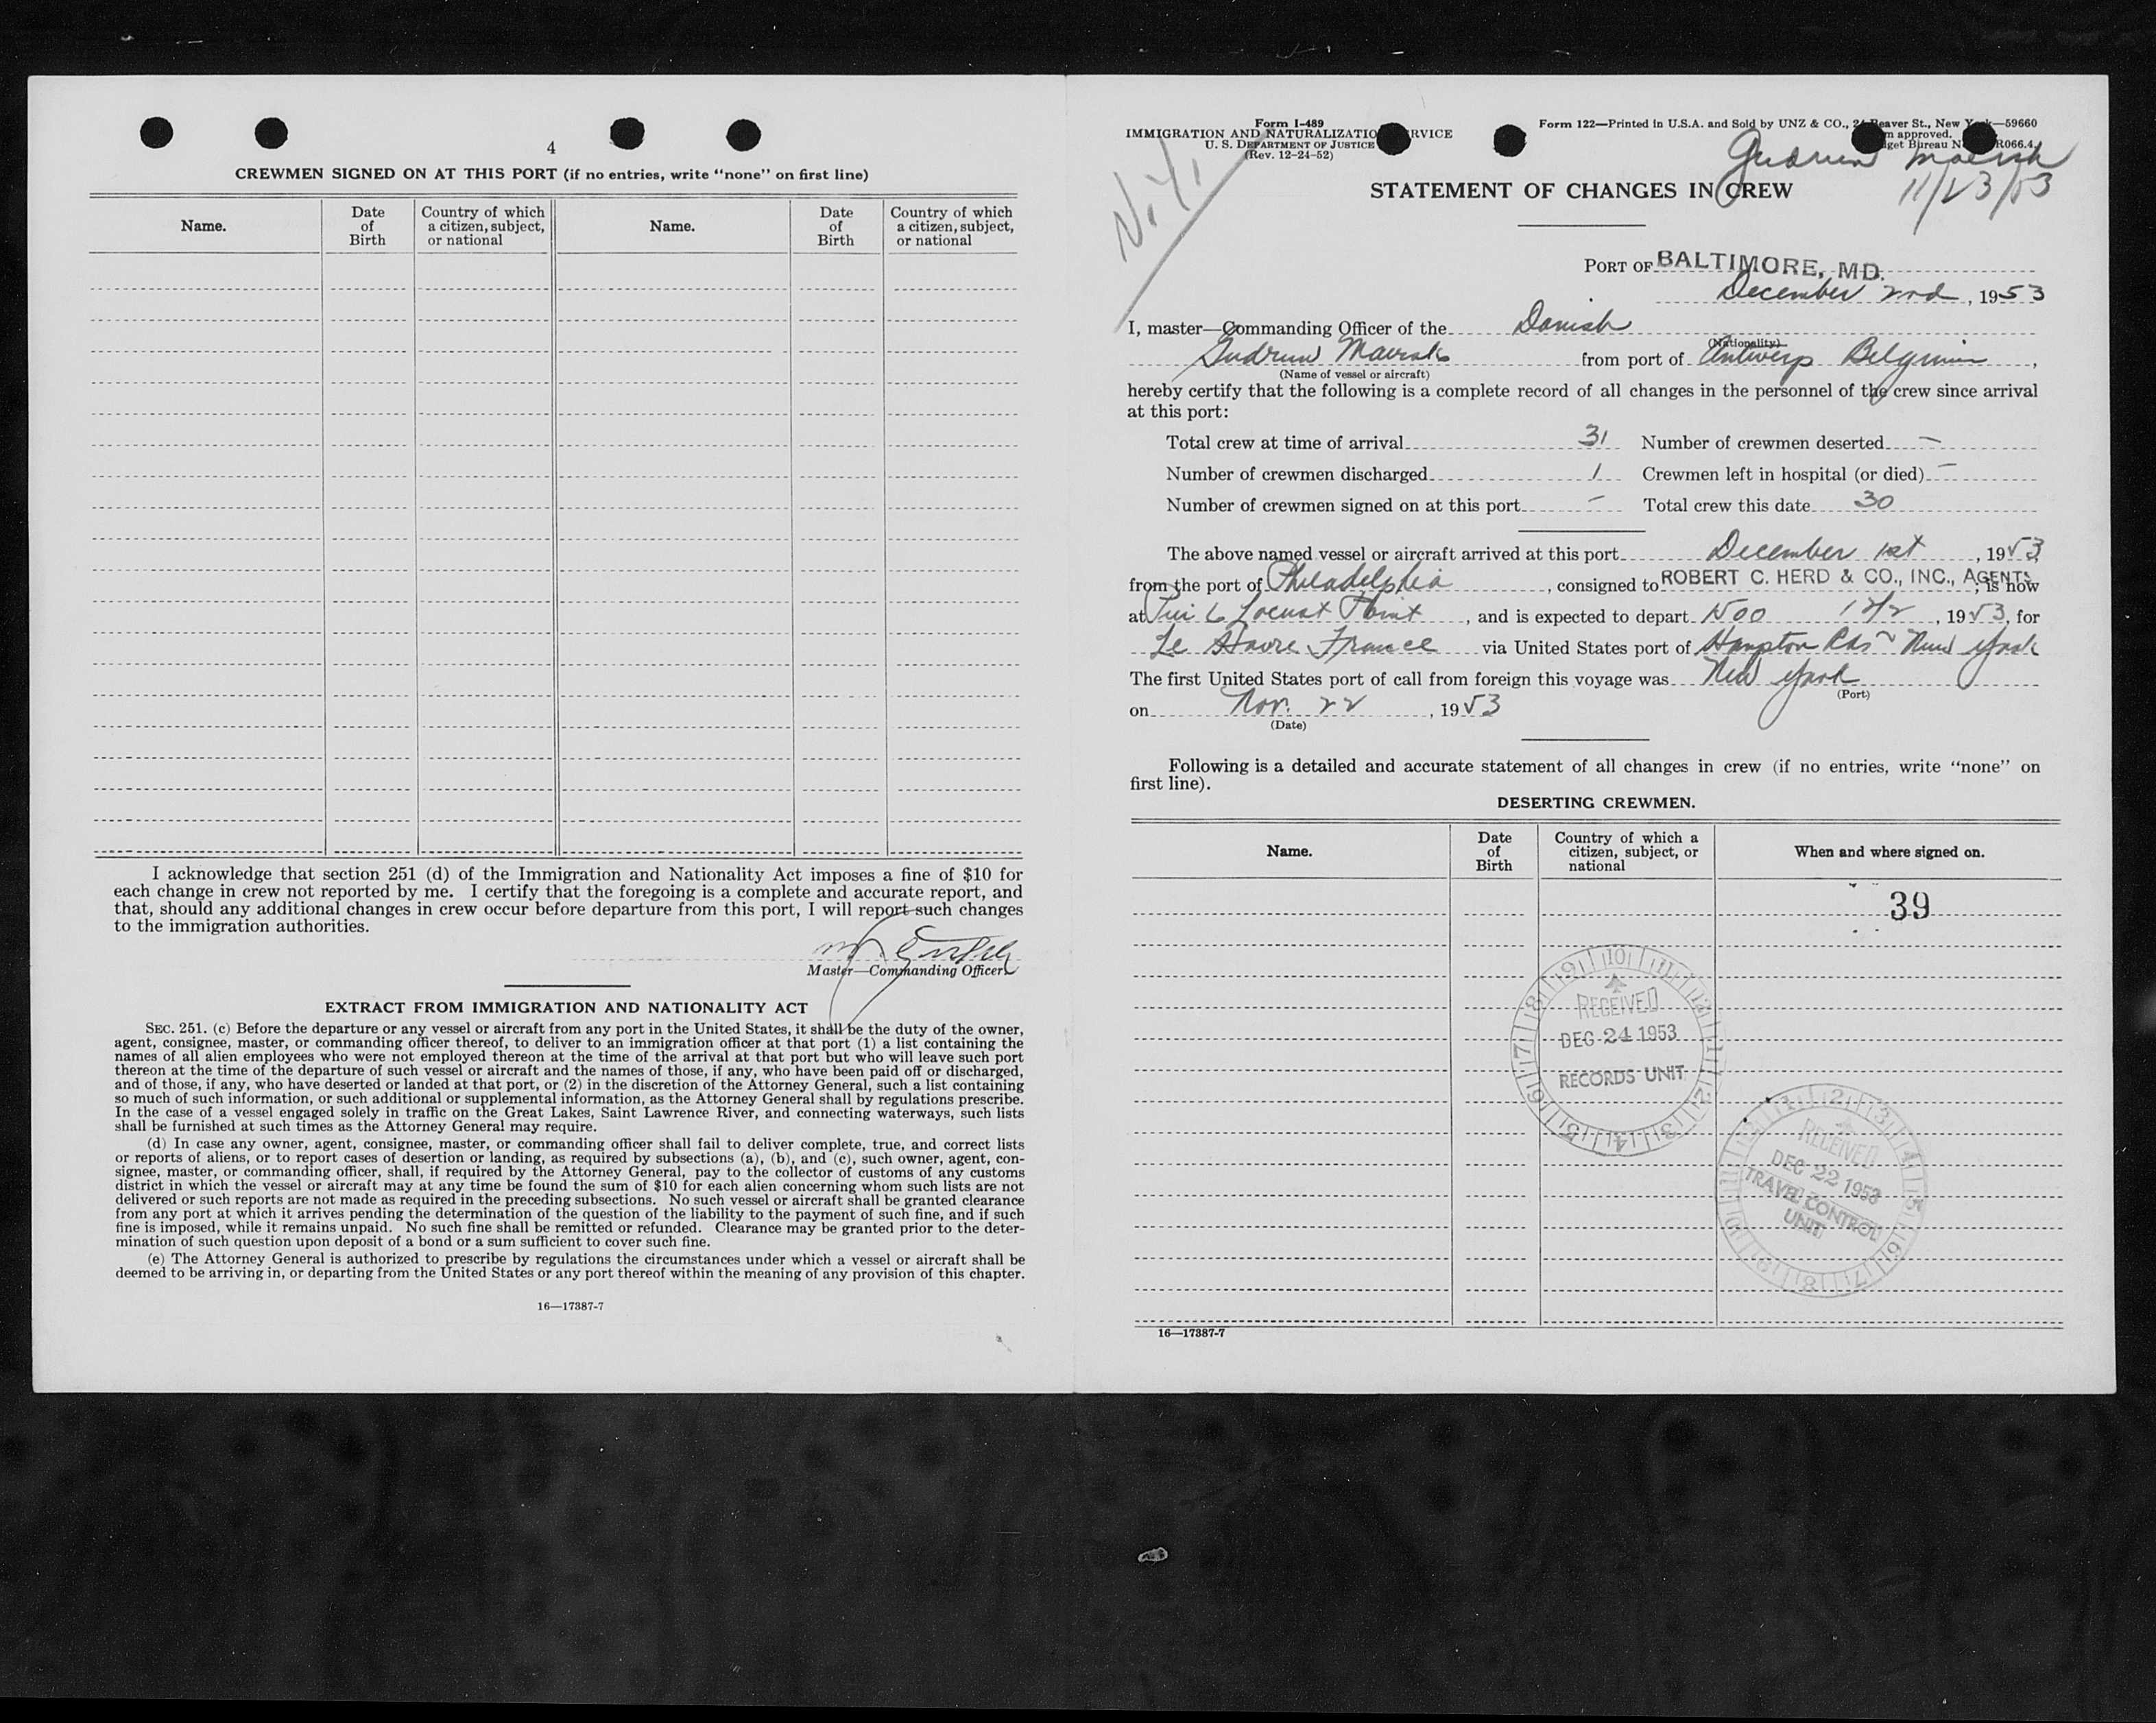 4
CREWMEN SIGNED ON AT THIS PORT (if no entries, write “none” on first line)
Name. Date of Birth Country of which a citizen, subject, or national Name. Date of Birth Country of which a citizen, subject, or national
I acknowledge that section 251 (d) of the Immigration and Nationality Act imposes a fine of $10 for
each change in crew not reported by me. I certify that the foregoing is a complete and accurate report, and
that, should any additional changes in crew occur before departure from this port, I will report such changes
to the immigration authorities.
Master—Commanding Officer.
EXTRACT FROM IMMIGRATION AND NATIONALITY ACT
SEC. 251. (c) Before the departure or any vessel or aircraft from any port in the United States, it shall be the duty of the owner,
agent, consignee, master, or commanding officer thereof, to deliver to an immigration officer at that port (1) a list containing the
names of all alien employees who were not employed thereon at the time of the arrival at that port but who will leave such port
thereon at the time of the departure of such vessel or aircraft and the names of those, if any, who have been paid off or discharged,
and of those, if any, who have deserted or landed at that port, or (2) in the discretion of the Attorney General, such a list containing
so much of such information, or such additional or supplemental information, as the Attorney General shall by regulations prescribe.
In the case of a vessel engaged solely in traffic on the Great Lakes, Saint Lawrence River, and connecting waterways, such lists
shall be furnished at such times as the Attorney General may require.
(d) In case any owner, agent, consignee, master, or commanding officer shall fail to deliver complete, true, and correct lists
or reports of aliens, or to report cases of desertion or landing, as required by subsections (a), (b), and (c), such owner, agent, con-
signee, master, or commanding officer, shall, if required by the Attorney General, pay to the collector of customs of any customs
district in which the vessel or aircraft may at any time be found the sum of $10 for each alien concerning whom such lists are not
delivered or such reports are not made as required in the preceding subsections. No such vessel or aircraft shall be granted clearance
from any port at which it arrives pending the determination of the question of the liability to the payment of such fine, and if such
fine is imposed, while it remains unpaid. No such fine shall be remitted or refunded. Clearance may be granted prior to the deter-
mination of such question upon deposit of a bond or a sum sufficient to cover such fine.
(e) The Attorney General is authorized to prescribe by regulations the circumstances under which a vessel or aircraft shall be
deemed to be arriving in, or departing from the United States or any port thereof within the meaning of any provision of this chapter.
16—17387-7
Form I-489
IMMIGRATION AND NATURALIZATIO RVICE
U. S. DEPARTMENT OF JUSTICE
(Rev. 12-24-52)
Form 122—Printed in U.S.A. and Sold by UNZ & CO., 2 eaver St., New Y k—59660
m approved.
get Bureau N R066.4
N.Y.
Gudrun Maersk
11/23/53
STATEMENT OF CHANGES IN CREW
PORT OF BALTIMORE, MD.
December 2nd, 1953
I, master—Commanding Officer of the Danish
(Nationality)
Gudrun Maersk from port of Antwerp Belgium,
(Name of vessel or aircraft)
hereby certify that the following is a complete record of all changes in the personnel of the crew since arrival
at this port:
Total crew at time of arrival 31 Number of crewmen deserted —
Number of crewmen discharged 1 Crewmen left in hospital (or died) —
Number of crewmen signed on at this port — Total crew this date 30
The above named vessel or aircraft arrived at this port December 1st, 1953
from the port of Philadelphia, consigned to ROBERT C. HERD & CO., INC., AGENTS, is now
at Pier 6 Locust Point, and is expected to depart 1500 12/2, 1953, for
Le Havre France via United States port of Hampton Rds ~ New York
The first United States port of call from foreign this voyage was New York
(Port)
on Nov. 22, 1953
(Date)
Following is a detailed and accurate statement of all changes in crew (if no entries, write “none” on
first line).
DESERTING CREWMEN.
Name. Date of Birth Country of which a citizen, subject, or national When and where signed on.
39
RECEIVED
DEC 24 1953
RECORDS UNIT
RECEIVED
DEC 22 1953
TRAVEL CONTROL
UNIT
16—17387-7